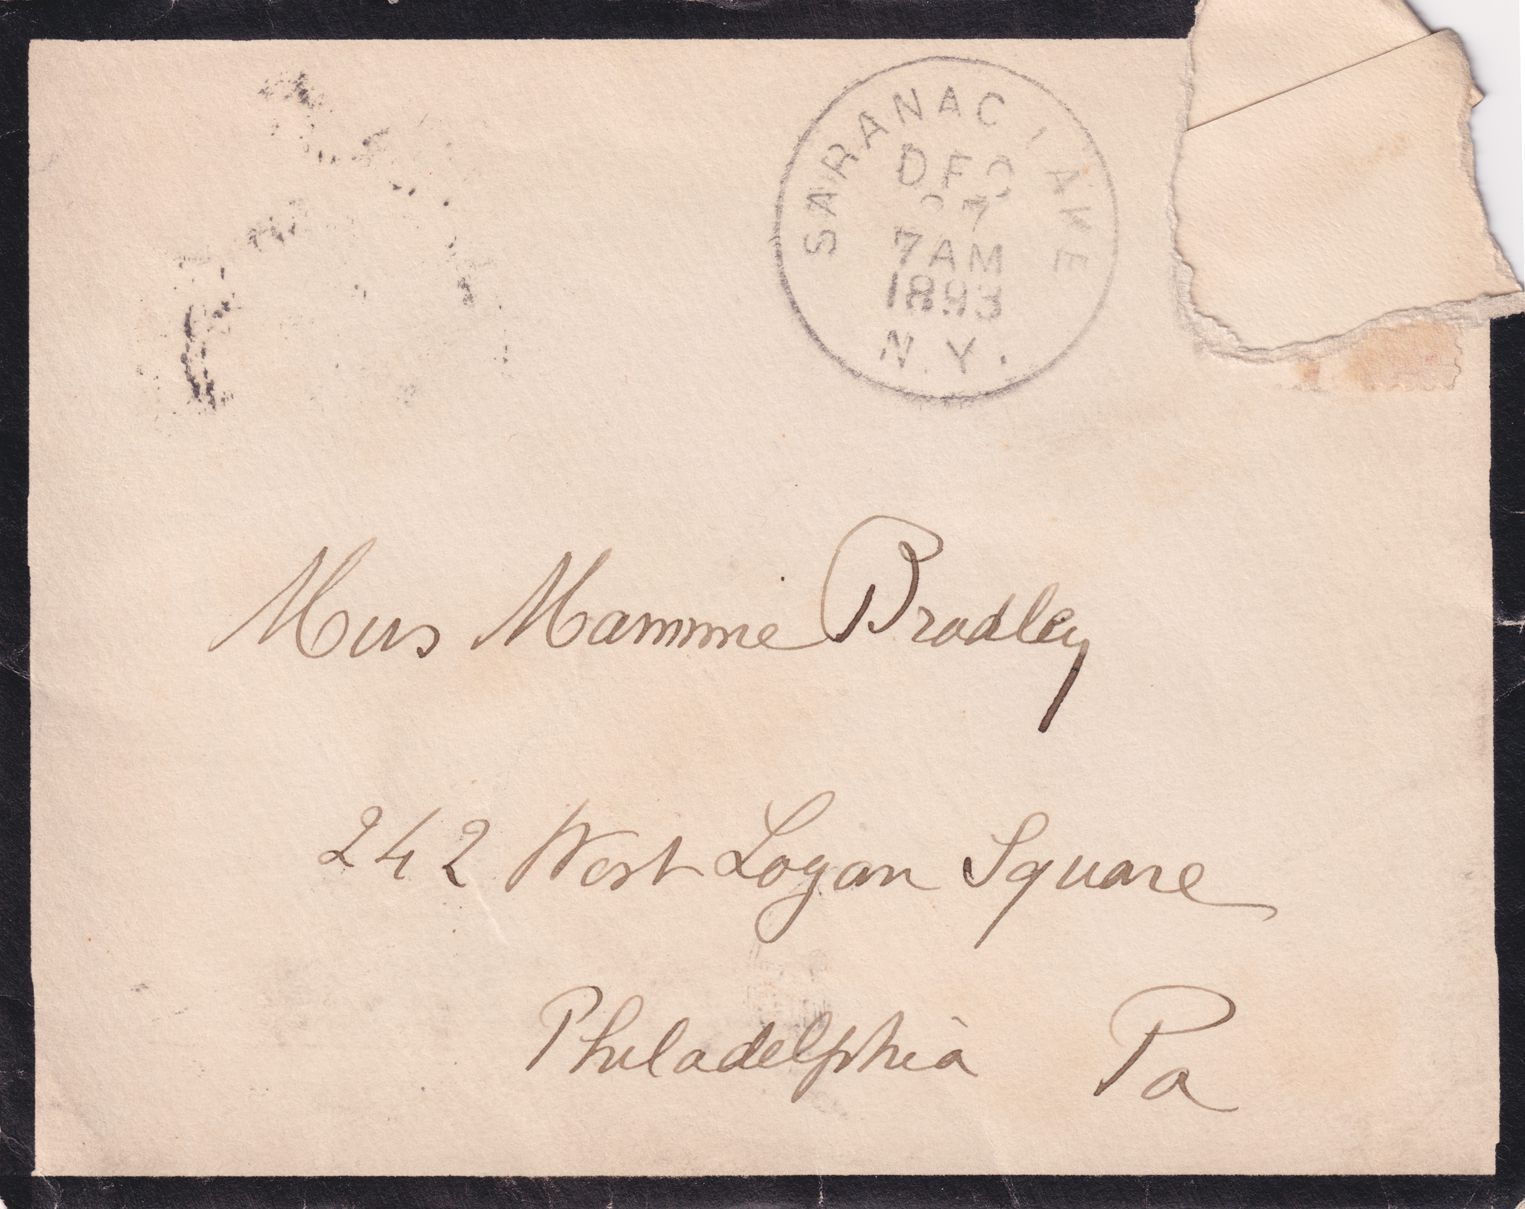 SARANAC LAKE
DEC
27
7AM
1893
N.Y.
Miss Mammie Bradley
242 West Logan Square
Philadelphia Pa